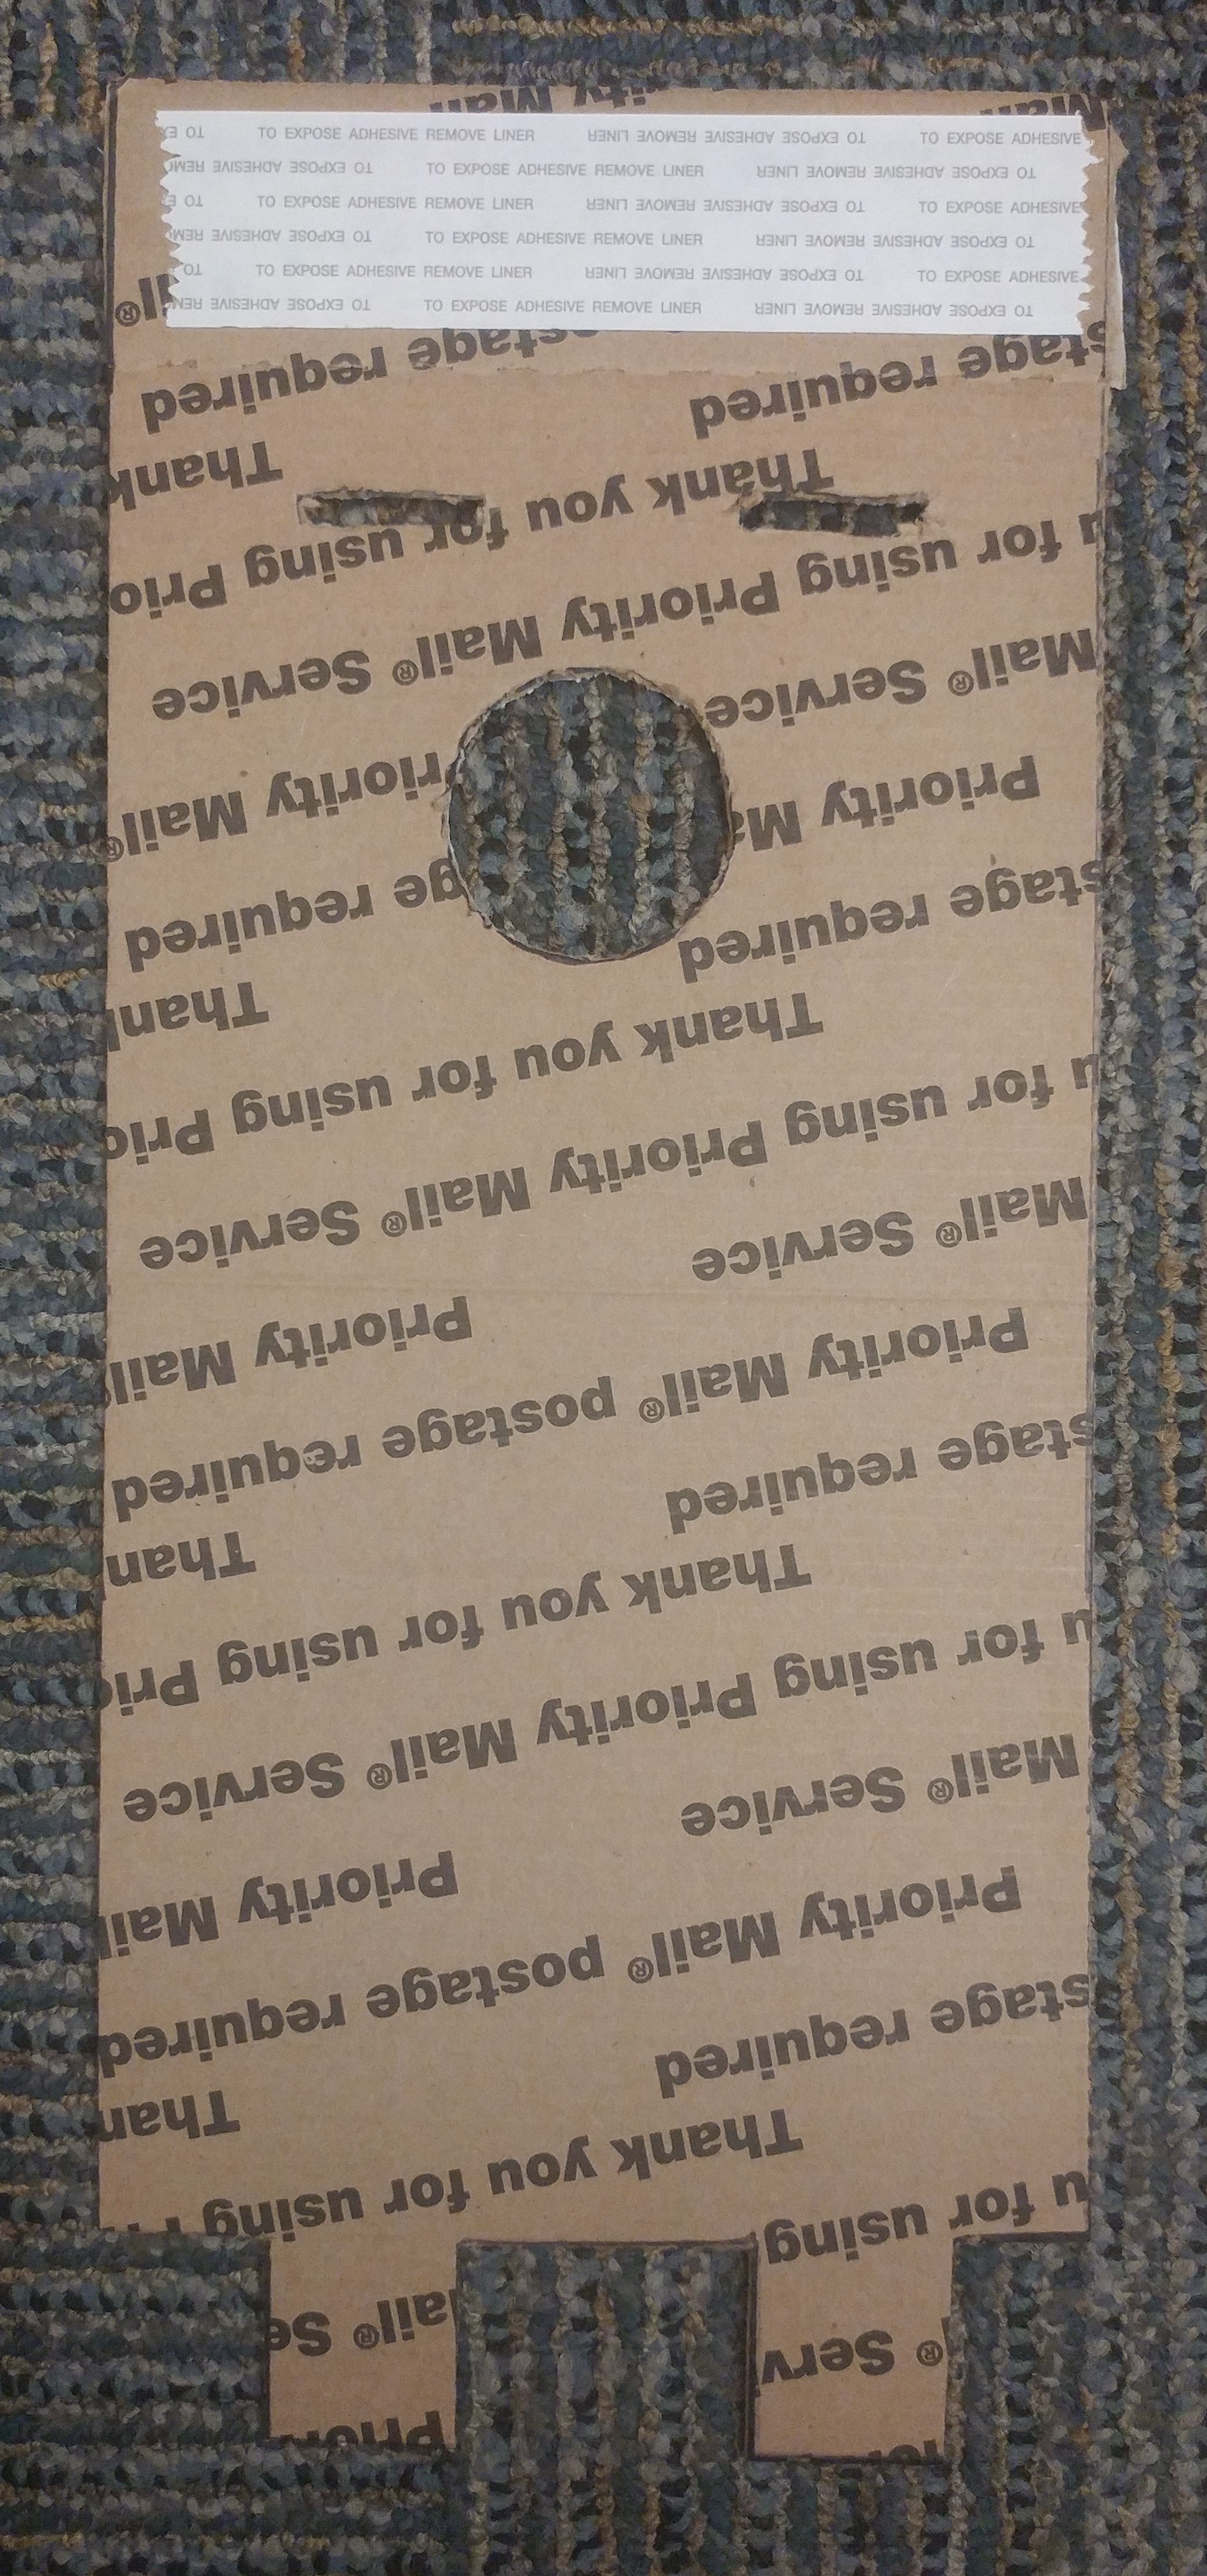 TO EXPOSE ADHESIVE REMOVE LINER TO EXPOSE ADHESIVE REMOVE LINER TO EXPOSE ADHESIVE
TO EXPOSE ADHESIVE TO EXPOSE ADHESIVE REMOVE LINER TO EXPOSE ADHESIVE REMOVE LINER
TO EXPOSE ADHESIVE REMOVE LINER TO EXPOSE ADHESIVE REMOVE LINER TO EXPOSE ADHESIVE
TO EXPOSE ADHESIVE TO EXPOSE ADHESIVE REMOVE LINER TO EXPOSE ADHESIVE REMOVE LINER
TO TO EXPOSE ADHESIVE REMOVE LINER TO EXPOSE ADHESIVE REMOVE LINER TO EXPOSE ADHESIVE
TO EXPOSE ADHESIVE TO EXPOSE ADHESIVE REMOVE LINER TO EXPOSE ADHESIVE REMOVE LINER
using
Thank you for using
Than
stage required
Priority Mail® postage required
Priority Mail
Mail® Service
u for using Priority Mail® Service
Thank you for using Pri
Than
stage required
Priority Mail® postage required
Priority Mail
Mail® Service
u for using Priority Mail® Service
Thank you for using Prio
Thank
stage required
Priority Ma
ge required
riority Mail®
Mail® Service
u for using Priority Mail® Service
Thank you for using Prio
Thank
stage required
stage required